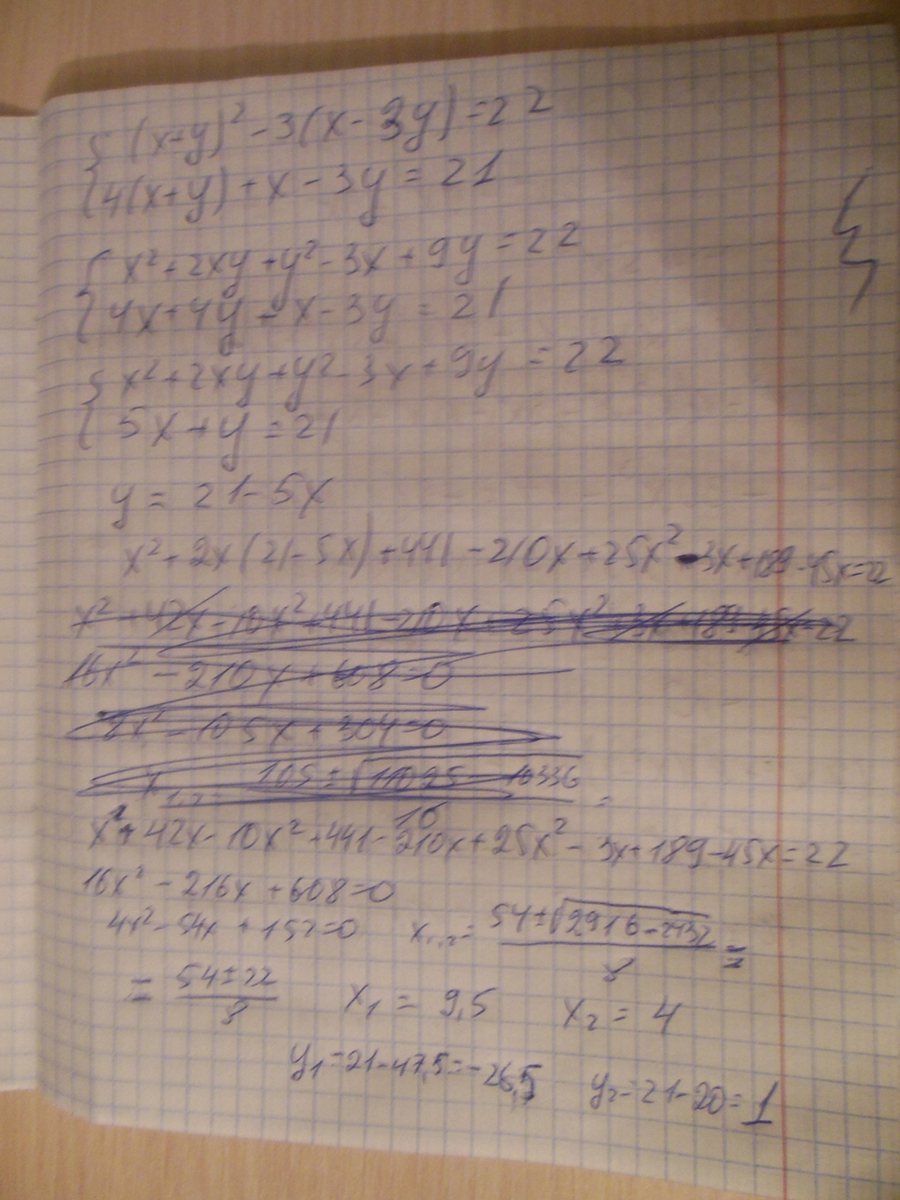 { (x+y)² - 3(x - 3y) = 22
{ 4(x+y) + x - 3y = 21
{ x² + 2xy + y² - 3x + 9y = 22
{ 4x + 4y + x - 3y = 21
{ x² + 2xy + y² - 3x + 9y = 22
{ 5x + y = 21
y = 21 - 5x
x² + 2x(21 - 5x) + 441 - 210x + 25x² - 3x + 189 - 45x = 22
x² + 42x - 10x² + 441 - 210x + 25x² - 3x + 189 - 45x = 22
16x² - 210x + 608 = 0
8x² - 105x + 304 = 0
x² + 42x - 10x² + 441 - 210x + 25x² - 3x + 189 - 45x = 22
16x² - 216x + 608 = 0
4x² - 54x + 152 = 0 x₁,₂ = (54 ± √(2916 - 2432))/8 =
= (54 ± 22)/8 x₁ = 9,5 x₂ = 4
y₁ = 21 - 47,5 = -26,5 y₂ = 21 - 20 = 1